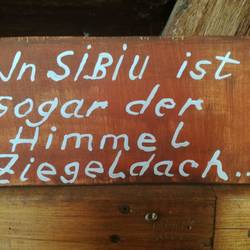 In SiBiU ist
sogar der
Himmel
Ziegeldach...